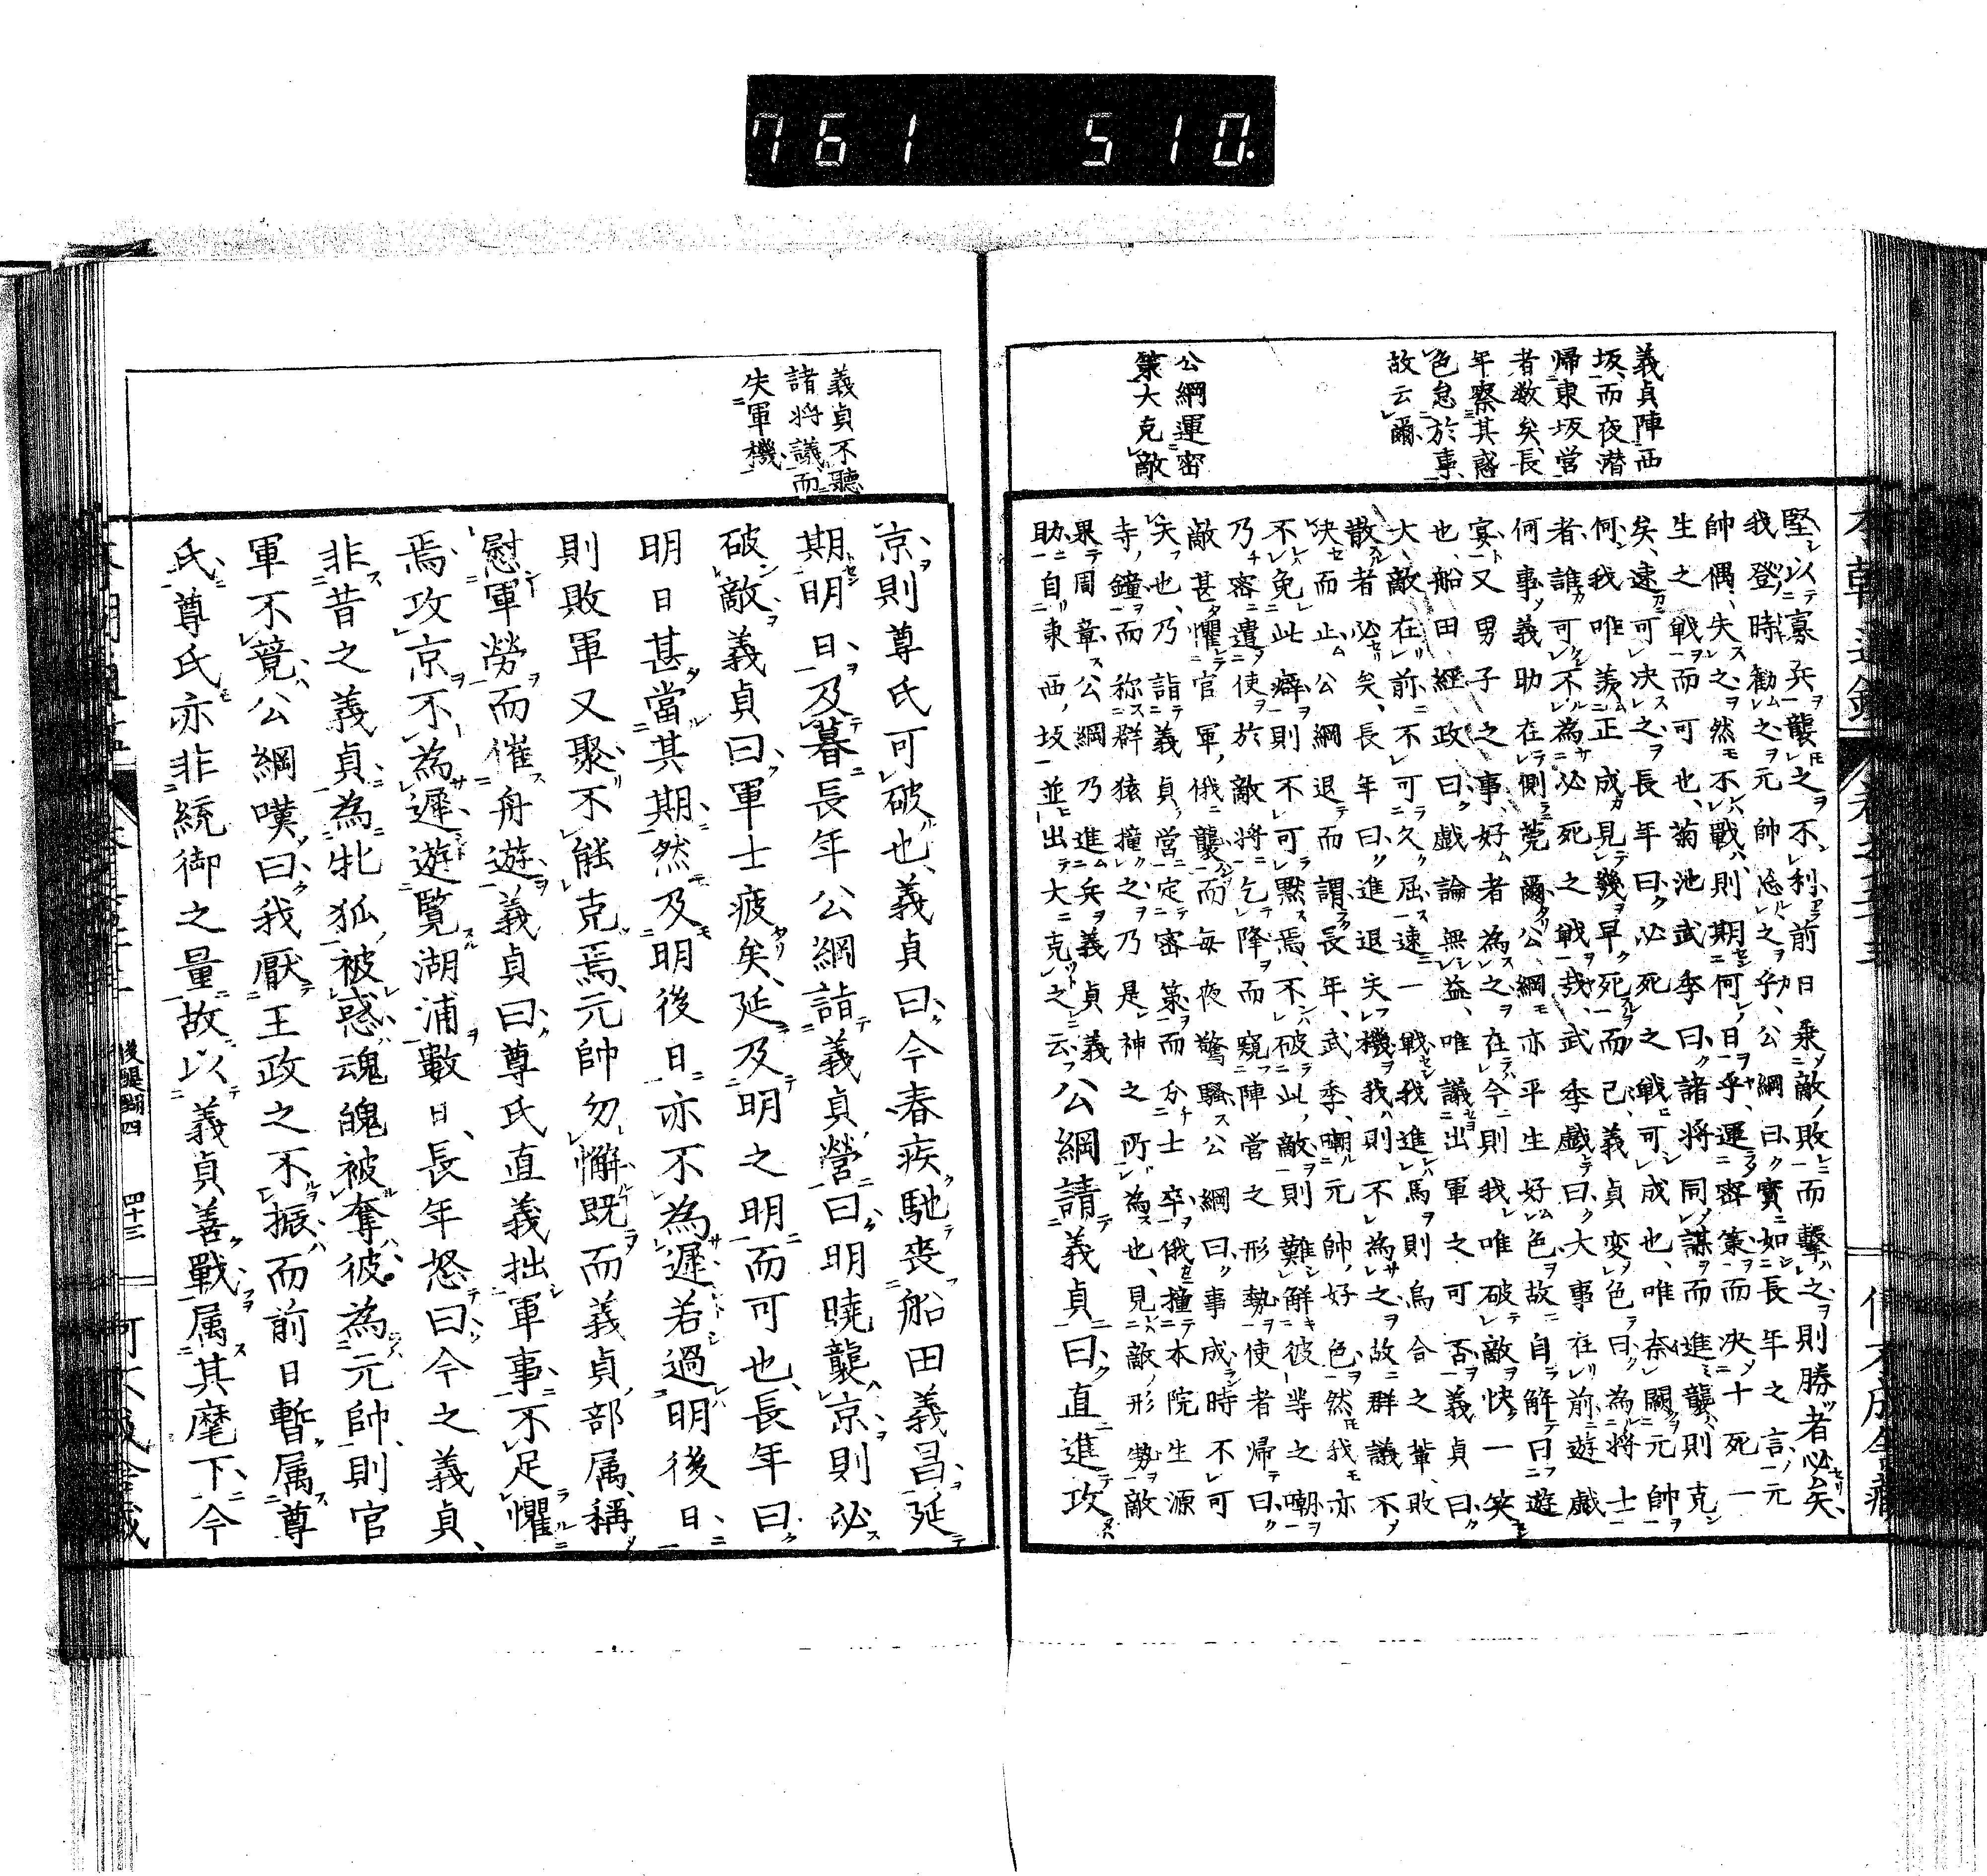 761 510.
義貞陣西
坂、而夜潜
帰東坂営
者数矣、長
年察其惑
色怠於事、
故云爾、
公綱運密
策大克敵
堅、以寡兵襲之不利、前日乗敵敗而撃之則勝者必矣、
我登時勧之、元帥忽之乎、公綱曰、實如長年之言、元
帥偶失之、然不戰則期何日乎、運密策而决十死一
生之戰而可也、菊池武季曰、諸将同謀而進襲則克
矣、速可决之、長年曰、必死之戰可成也、唯奈闕元帥
何、我唯羨正成見幾早死而己、義貞変色曰、為将士
者、誰可不為必死之戰哉、武季戯曰、大事在前、遊戯
何事、義助在側莞爾、公綱亦平生好色、故自解曰、遊
宴又男子之事、好者為之、在今則我唯破敵快一笑
也、船田經政曰、戲論無益、唯議出軍之可否、義貞曰、
大敵在前、不可久屈、速一戰、我進馬則烏合之輩、敗
散者必矣、長年曰、進退失機、我則不為之、故群議不
决而止、公綱退而謂長年、武季嘲元帥好色、然我亦
不免此癖、則不可默焉、不破此敵則難解彼輩之嘲、
乃密遣使於敵将、乞降而窺陣営之形勢、使者帰曰、
敵甚懼官軍俄襲、而毎夜驚騒、公綱曰、事成時不可
失也、乃詣義貞営、定密策而分士卒、俄撞本院生源
寺鐘、而称群猿撞之、乃是神之所為也、見敵形勢、敵
果周章、公綱乃進兵、義貞義
助自東西坂並出、大克之云、公綱請義貞曰、直進攻
義貞不聽
諸将議而
失軍機
京、則尊氏可破也、義貞曰、今春疾馳喪船田義昌、延
期明日、及暮長年公綱詣義貞營曰、明曉襲京則必
破敵、義貞曰、軍士疲矣、延及明之明而可也、長年曰、
明日甚當其期、然及明後日、亦不為遲、若過明後日、
則敗軍又聚不能克焉、元帥勿懈、既而義貞部属、稱
慰軍勞而催舟遊、義貞曰、尊氏直義拙軍事、不足懼
焉、攻京不為遲、遊覧湖浦數日、長年怒曰、今之義貞、
非昔之義貞、為牝狐被惑、魂魄被奪彼、為元帥、則官
軍不競、公綱嘆曰、我厭王政之不振、而前日暫属尊
氏、尊氏亦非統御之量、故以義貞善戰、属其麾下、今
後醍醐四
四十三